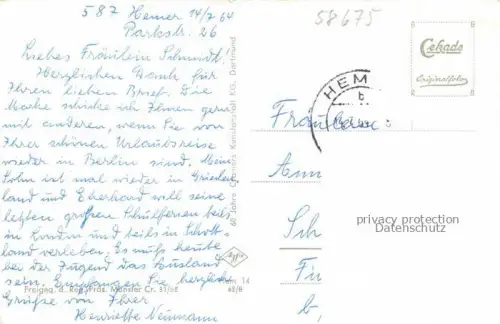 587 Hemer 14/7 64
Parkstr. 26
58675
Liebes Fräulein Schmidt!
Herzlichen Dank für
Ihren lieben Brief. Die
Marke schicke ich Ihnen gern
mit anderen, wenn Sie von
Ihrer schönen Urlaubsreise
wieder in Berlin sind. Mein
Sohn ist mal wieder in Griechen
land und Eberhard will seine
letzten großen Schulferien teils
in London und teils in Schott-
land verleben. Es muß heute
bei der Jugend das Ausland
sein. Empfangen Sie herzliche
Grüße von Ihrer
Henriette Neumann
Freigeg. d. Reg. Präs. Münster Cr. 51/62
60 Jahre Cramers Kunstanstalt KG, Dortmund
Agfa
14
62/8
Cekade
Originalfoto
HEM
b
Fräulein
Ann
Sch
Fü
b,
privacy protection
Datenschutz